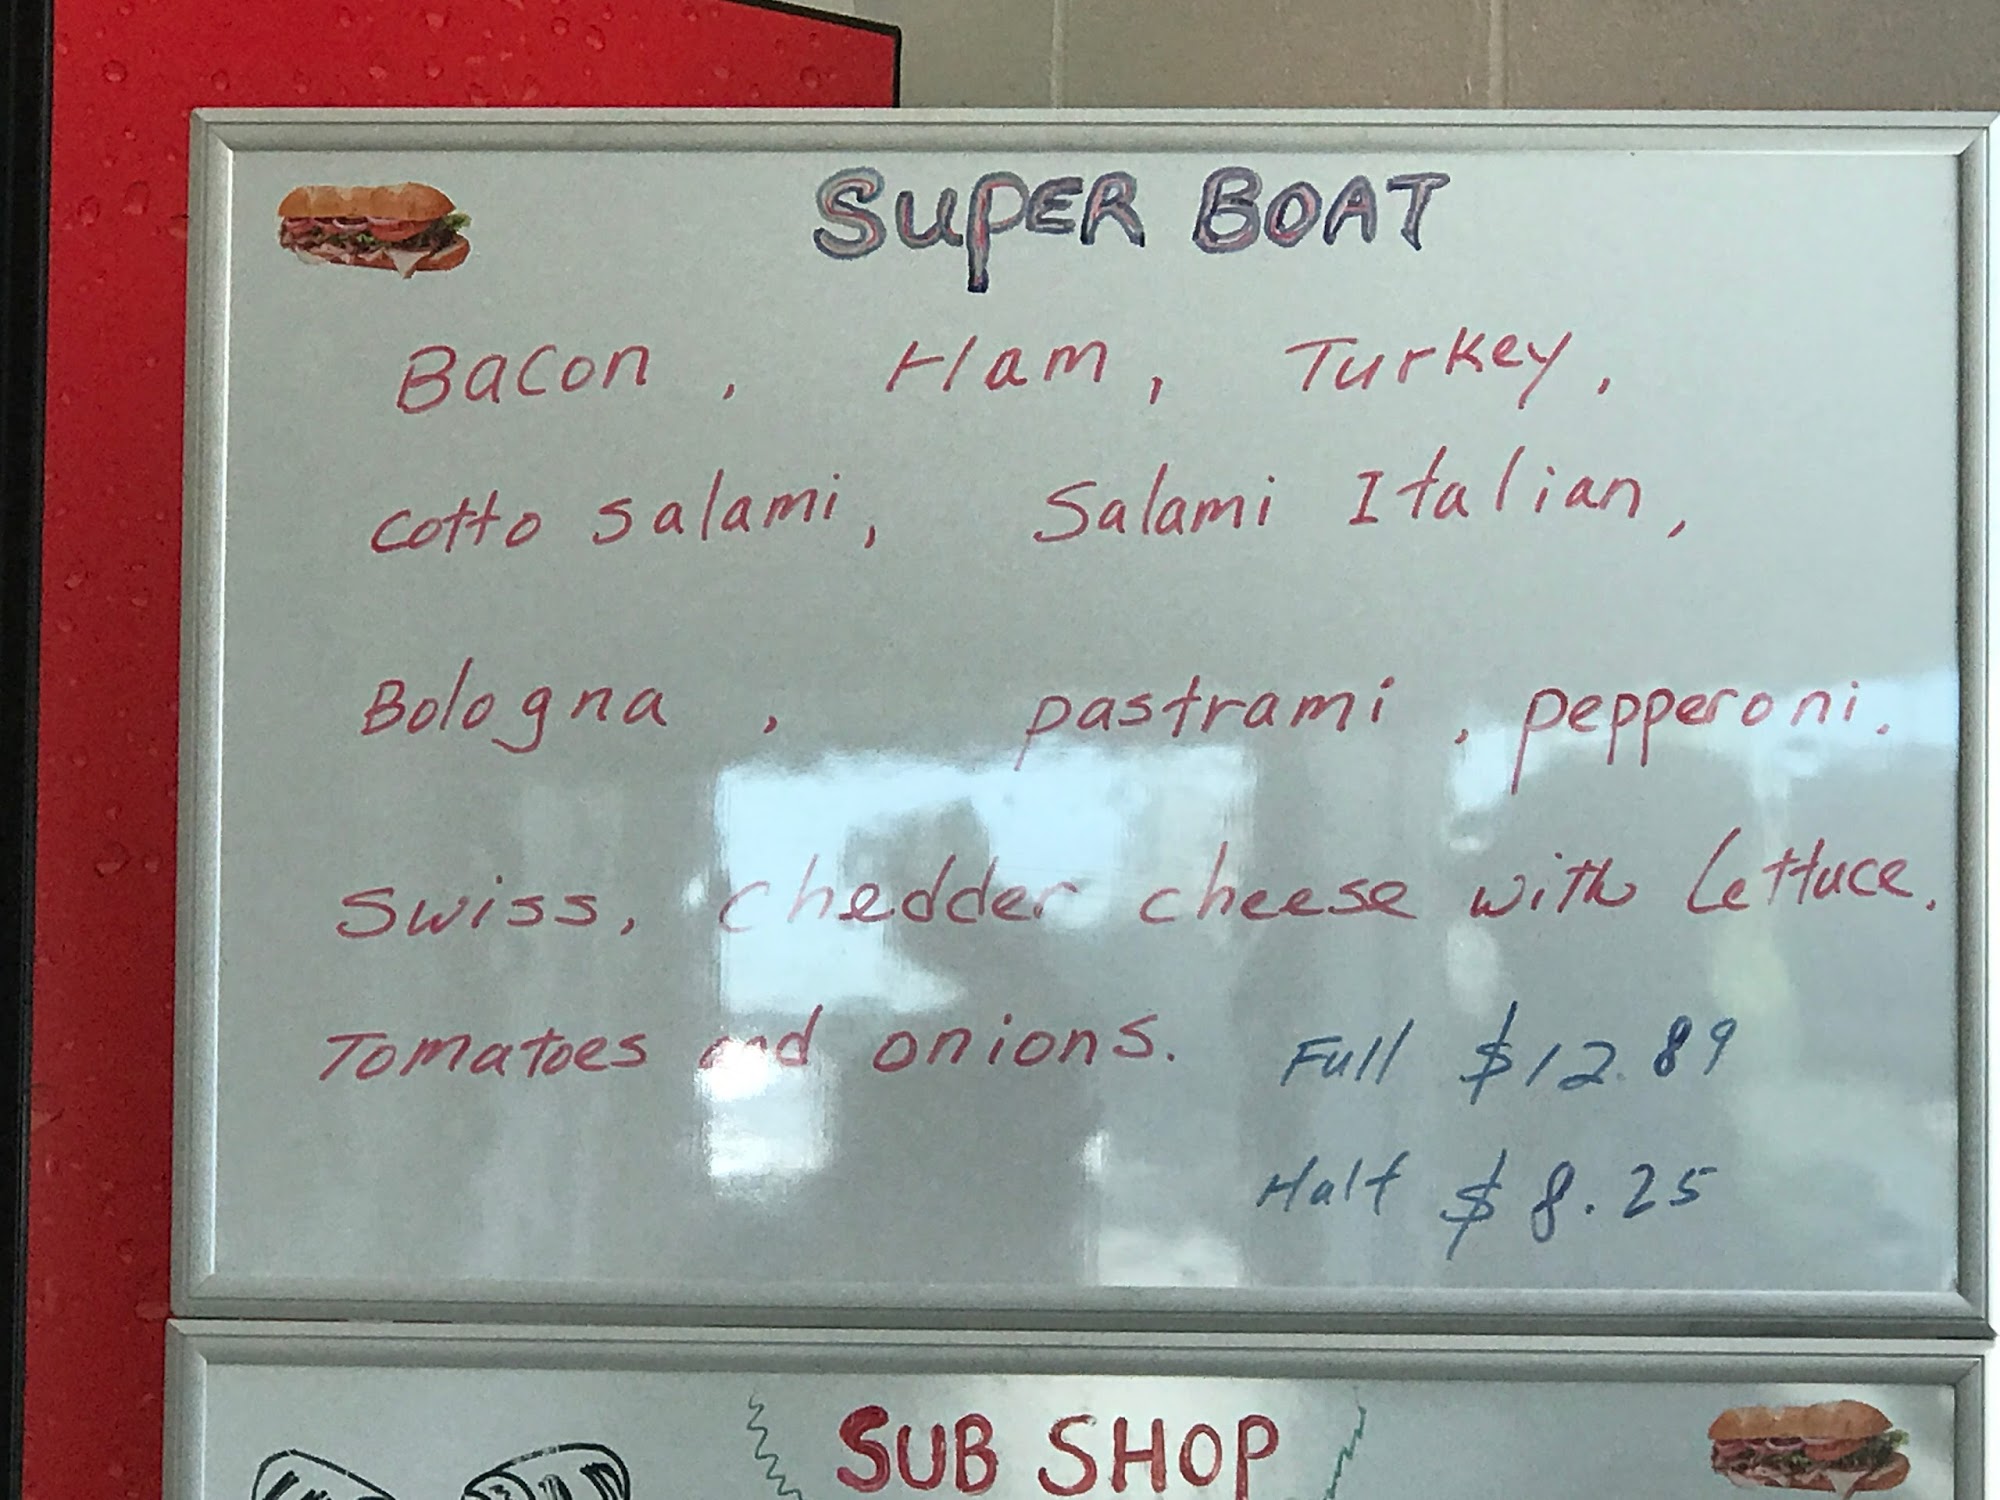 SUPER BOAT
Bacon, Ham, Turkey,
cotto salami, Salami Italian,
Bologna, pastrami, pepperoni.
Swiss, chedder cheese with Lettuce.
Tomatoes and onions. Full $12.89
Half $8.25
SUB SHOP